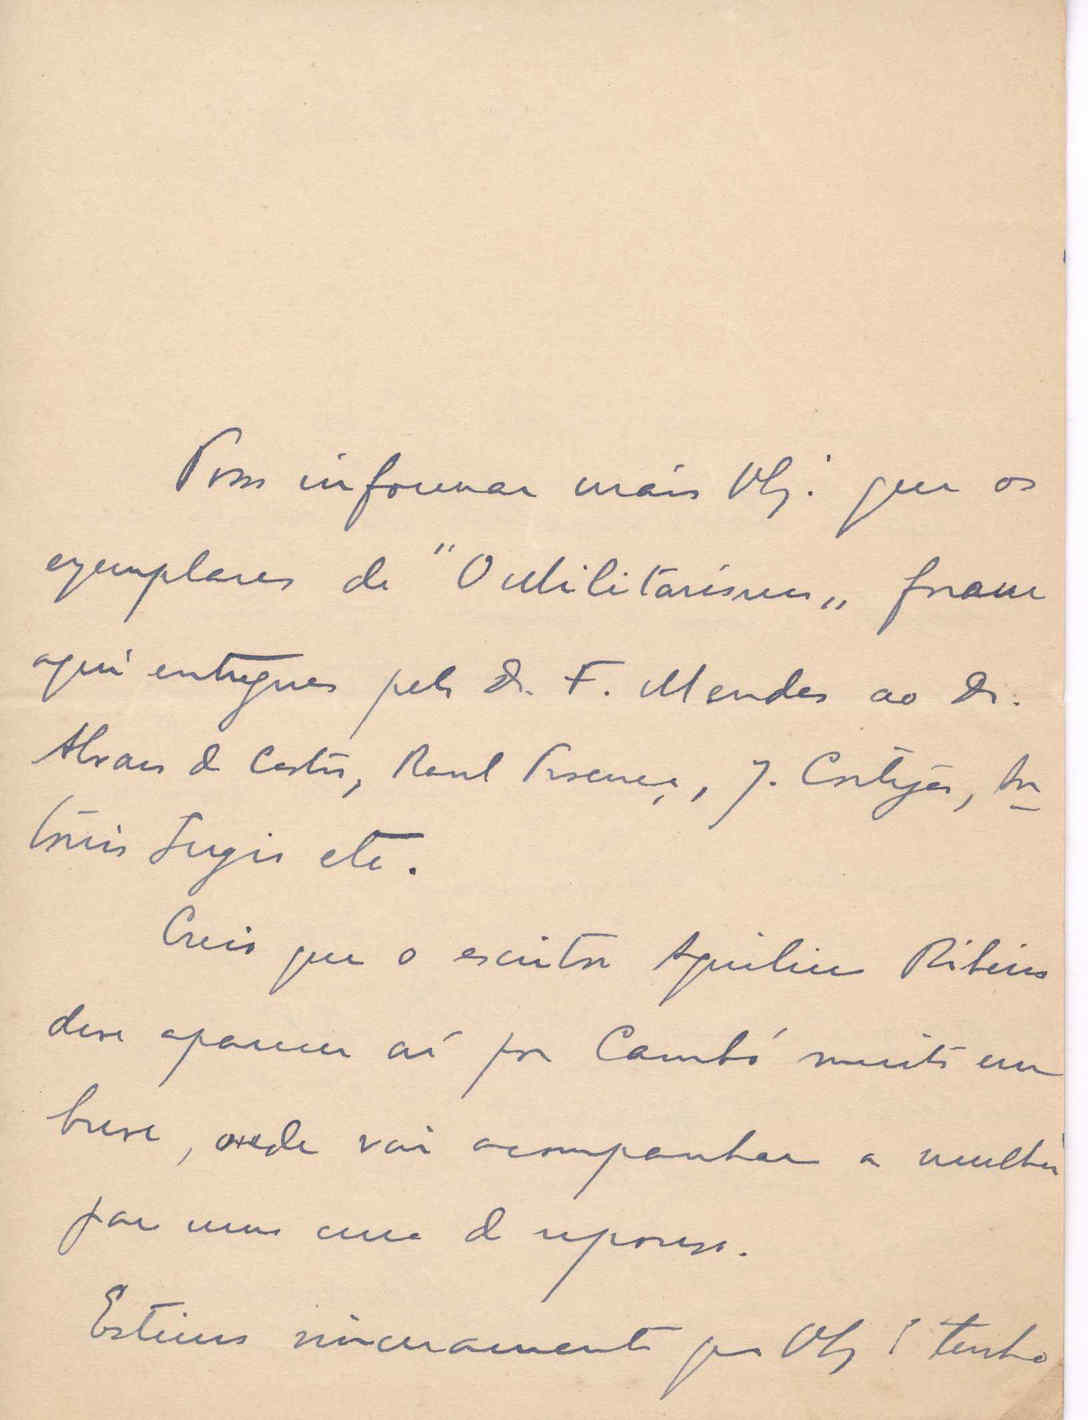 Posso informar mais V. Ex.ª que os
exemplares de "O Militarismo" foram
aqui entregues pelo Dr. F. Mendes ao Dr.
Alvaro de Castro, Raul Proença, J. Cortejão, An
tónio Sergio etc.
Creio que o escritor Aquilino Ribeiro
deve aparecer aí por Cambó muito em
breve, onde vai acompanhar a mulher
para uma cura de repouso.
Estimo sinceramente que tenha